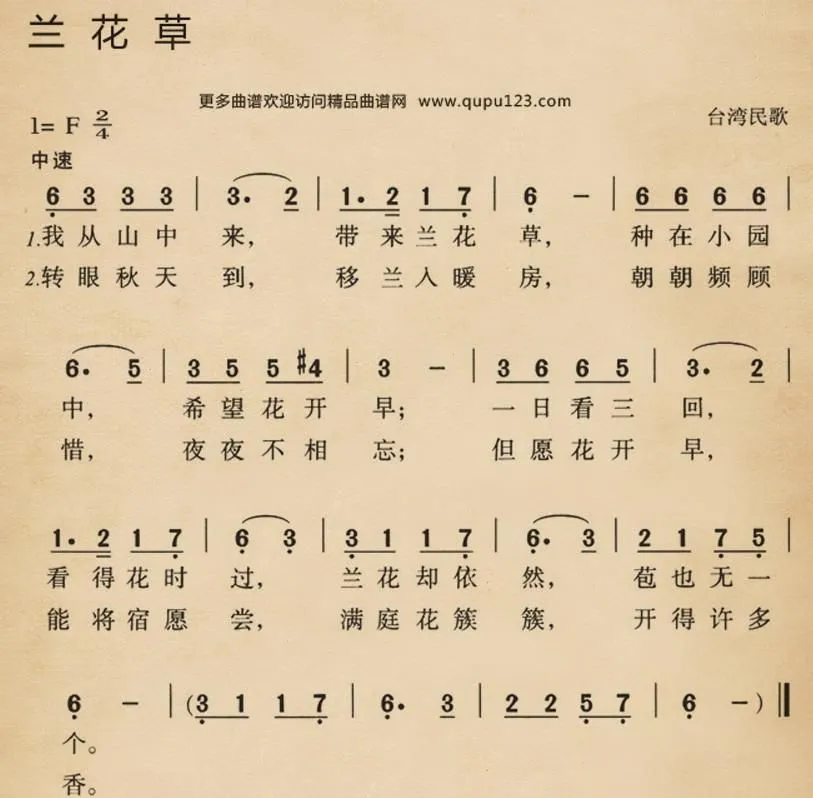 兰花草
更多曲谱欢迎访问精品曲谱网 www.qupu123.com
1= F 2/4
台湾民歌
中速
6̣ 3 3 3 | 3. 2 | 1. 2 1 7̣ | 6̣ － | 6 6 6 6 |
1.我从山中 来， 带来兰花 草， 种在小园
2.转眼秋天 到， 移兰入暖 房， 朝朝频顾
6. 5 | 3 5 5 #4 | 3 － | 3 6 6 5 | 3. 2 |
中， 希望花开 早； 一日看三 回，
惜， 夜夜不相 忘； 但愿花开 早，
1. 2 1 7̣ | 6̣ 3̣ | 3̣ 1 1 7̣ | 6̣. 3 | 2 1 7̣ 5̣ |
看得花时 过， 兰花却依 然， 苞也无一
能将宿愿 尝， 满庭花簇 簇， 开得许多
6̣ － | (3̣ 1 1 7̣ | 6̣. 3 | 2 2 5̣ 7̣ | 6̣ －) ‖
个。
香。